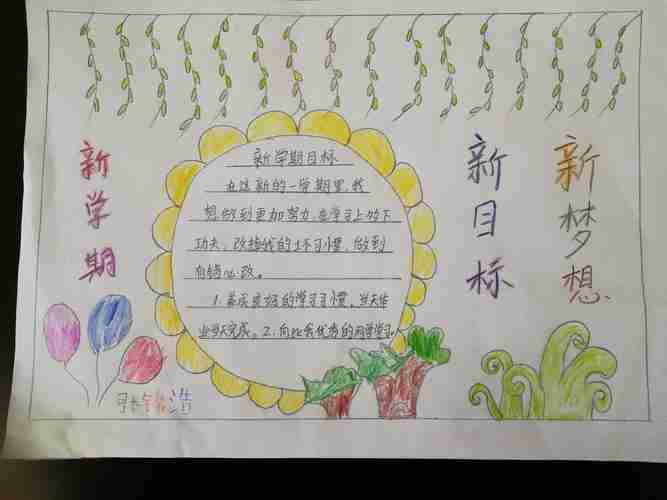 新学期
新学期目标
在这新的一学期里，我
想做到更加努力，在学习上劲下
功夫，改掉我的坏习惯，做到
有错必改。
1.养成良好的学习习惯。当天作
业当天完成。2.向比我优秀的同学学习
新目标
新梦想
浩